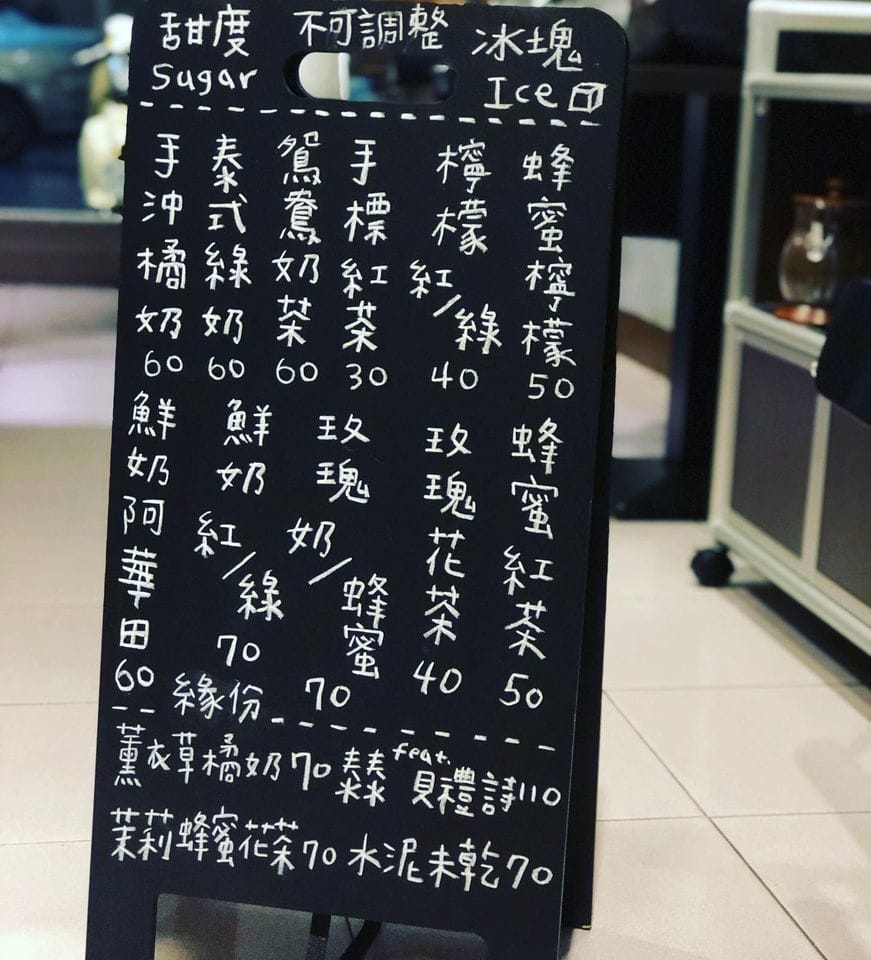 甜度 不可調整 冰塊
Sugar Ice
蜂蜜檸檬 50
檸檬紅/綠 40
手標紅茶 30
鴛鴦奶茶 60
泰式綠奶 60
手沖橘奶 60
蜂蜜紅茶 50
玫瑰花茶 40
玫瑰奶/蜂蜜 70
鮮奶紅/綠 70
鮮奶阿華田 60
緣份
薰衣草橘奶70 泰泰 feat. 貝禮詩110
茉莉蜂蜜花茶70 水泥未乾70